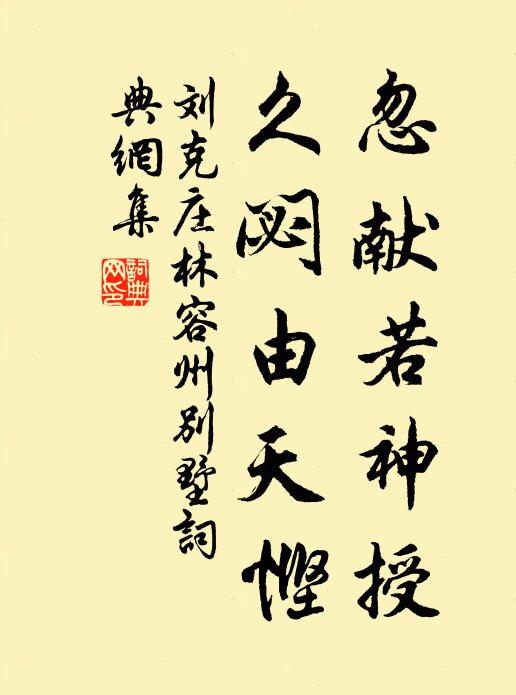 忽献若神授
久閟由天悭
刘克庄林容州别墅詞
典網集
詞典网印